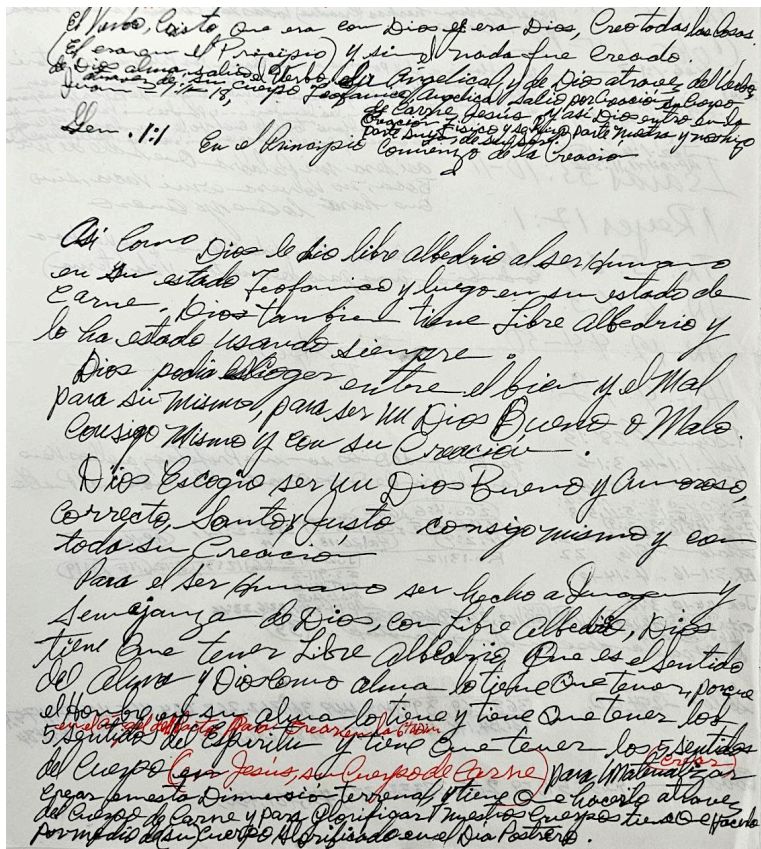 El Verbo, Cristo que era con Dios y era Dios, Creo todas las Cosas.
(El era en el Principio) y sin el nada fue creado.
de Dios alma, salio el Verbo, Angelical y de Dios atravez del Verbo,
Juan 1:1-18, Cuerpo Teofanico, Angelical salio por Creacion su Cuerpo
de Carne, Jesús y así Dios entro en la
Creacion
parte nuestra y nos hizo
Gen. 1:1 En el Principio
Comienzo de la Creación
Asi Como Dios le dio libre albedrio al ser Humano
en su estado Teofanico y luego en su estado de
Carne, Dios tambien tiene Libre Albedrio y
lo ha estado usando siempre.
Dios podia escoger entre el bien y el Mal
para si Mismo, para ser un Dios Bueno o Malo.
Consigo Mismo y con su Creación.
Dios Escogio ser un Dios Bueno y Amoroso,
Correcto, Santo y Justo consigo mismo y con
toda su Creación
Para el ser Humano ser hecho a Imagen y
Semejanza de Dios, con Libre Albedrio, Dios
tiene Que tener Libre Albedrio, Que es el sentido
del Alma y Dios como alma lo tiene Que tener, porque
el Hombre en su alma lo tiene y tiene Que tener los
en el Angel del Pacto, Para Crear en la 6ta Dim
5 sentidos del Espiritu y tiene Que tener los 5 sentidos
de Cuerpo (en Jesús, su Cuerpo de Carne) para Materializar (Crear)
Crear en esta Dimensión terrenal y tiene Que hacerlo atravez
del Cuerpo de Carne y para Glorificar Nuestros Cuerpos tiene Que Hacerlo
Por medio de (su) Cuerpo Glorificado en el Dia Postrero.